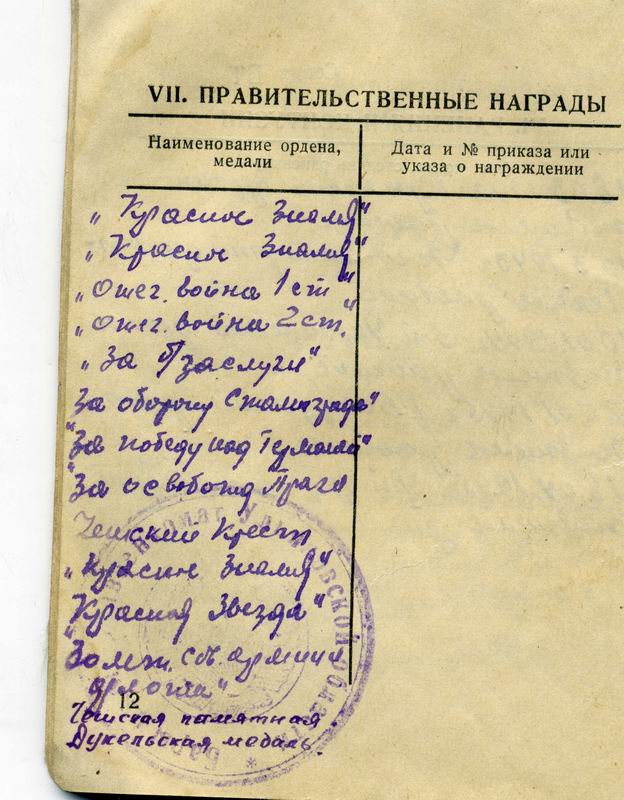 VII. ПРАВИТЕЛЬСТВЕННЫЕ НАГРАДЫ
Наименование ордена, медали
Дата и № приказа или указа о награждении
„Красное Знамя"
„Красное Знамя"
„Отеч. война 1 ст"
„Отеч. война 2 ст."
„За б/заслуги"
За оборону Сталинграда"
"За победу над Германией"
"За освобожд Праги
Чешский Крест
„Красное Знамя"
Красная Звезда"
Советской армии
12
Чешская памятная
Дукельская медаль.